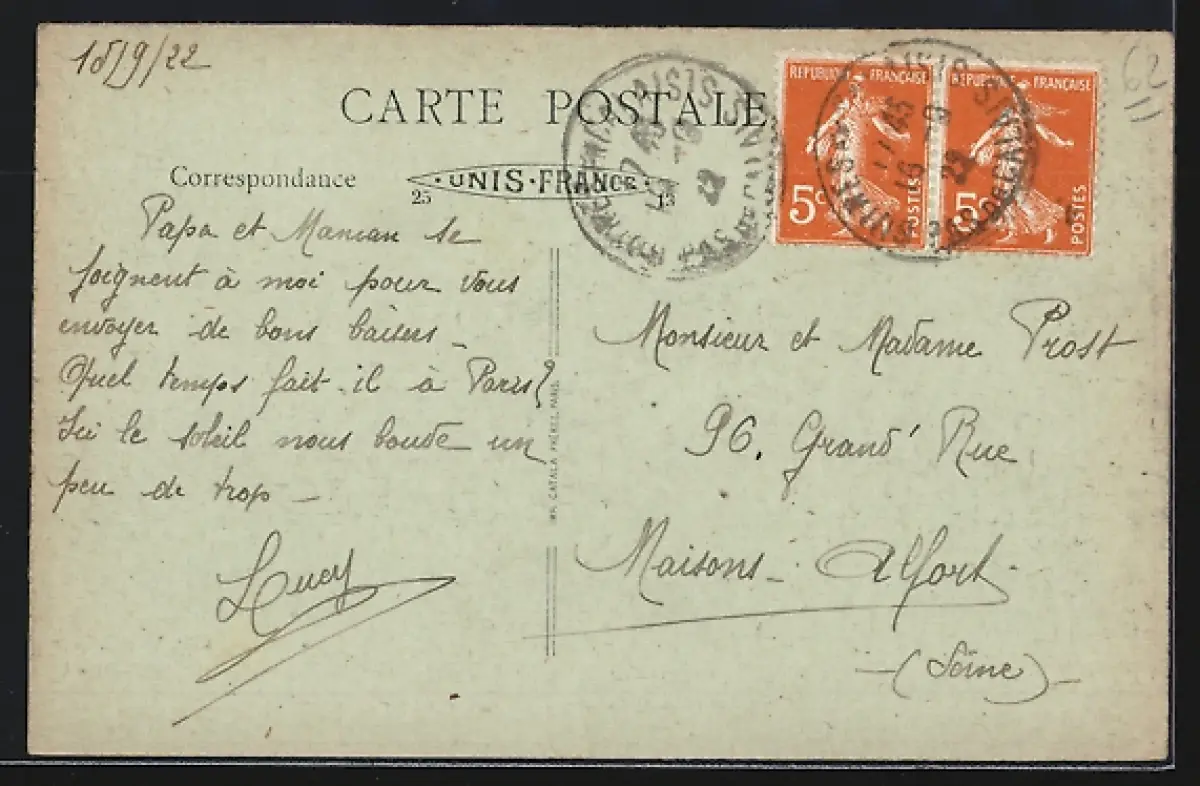 15/9/22
62
CARTE POSTALE
REPUBLIQUE FRANÇAISE
5c
POSTES
REPUBLIQUE FRANÇAISE
5c
POSTES
16 - 9
22
PAS DE CALAIS
Correspondance
UNIS-FRANCE
25 13
Papa et Maman se
joignent à moi pour vous
envoyer de bons baisers -
Quel temps fait-il à Paris?
Ici le soleil nous boude un
peu de trop -
Lucy
CATALA FRÈRES, PARIS
Monsieur et Madame Prost
96, Grand' Rue
Maisons-Alfort.
-(Seine)-